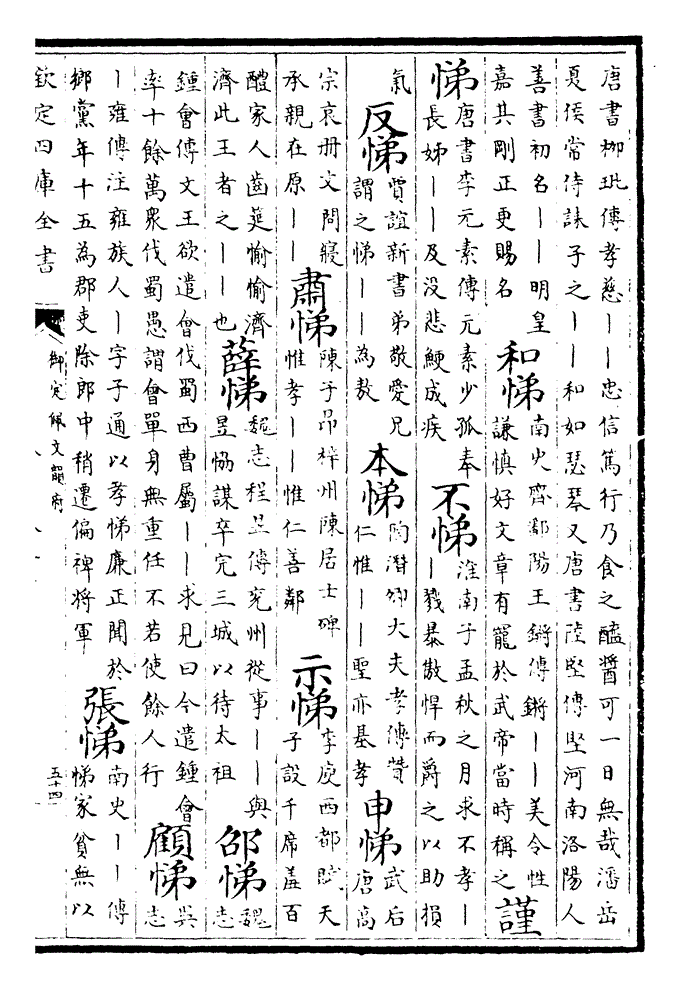 唐書柳玭傳孝慈丨丨忠信篤行乃食之醯醬可一日無哉潘岳
夏侯常侍誄子之丨丨和如瑟琴又唐書陸堅傳堅河南洛陽人
善書初名丨丨明皇
嘉其剛正更賜名
和悌
南史齊鄱陽王鏘傳鏘丨丨美令性
謙慎好文章有寵於武帝當時稱之
謹
悌
唐書李元素傳元素少孤奉
長姊丨丨及没悲鯁成疾
不悌
淮南子孟秋之月求不孝丨
丨戮暴傲悍而爵之以助損
氣
反悌
賈誼新書弟敬愛兄
謂之悌丨丨為敖
本悌
陶潛卿大夫孝傳贊
仁惟丨丨聖亦基孝
申悌
武后
唐高
宗哀册文問寢
承親在原丨丨
肅悌
陳子昂梓州陳居士碑
惟孝丨丨惟仁善鄰
示悌
李庾西都賦天
子設千席羞百
醴家人齒筵愉愉濟
濟此王者之丨丨也
薛悌
魏志程昱傳兖州從事丨丨與
昱恊謀卒完三城以待太祖
邵悌
魏
志
鍾會傳文王欲遣會伐蜀西曹屬丨丨求見曰今遣鍾會
率十餘萬衆伐蜀愚謂會單身無重任不若使餘人行
顧悌
吳
志
丨雍傳注雍族人丨字子通以孝悌廉正聞於
鄉黨年十五為郡吏除郎中稍遷偏裨將軍
張悌
南史丨丨傳
悌家貧無以
欽定四庫全書
御定佩文韻府
五十四